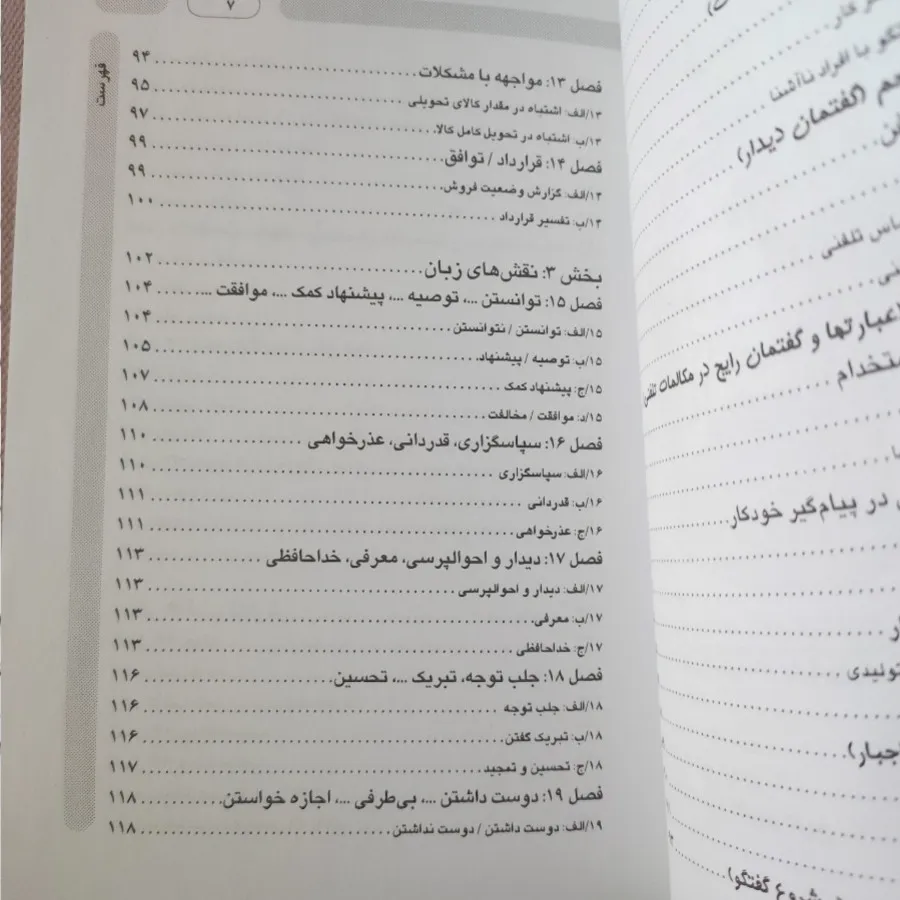 ۷
فهرست
فصل ۱۳: مواجهه با مشکلات ........ ۹۴
۱۳/الف: اشتباه در مقدار کالای تحویلی ........ ۹۵
۱۳/ب: اشتباه در تحویل کامل کالا ........ ۹۷
فصل ۱۴: قرارداد / توافق ........ ۹۹
۱۴/الف: گزارش وضعیت فروش ........ ۹۹
۱۴/ب: تفسیر قرارداد ........ ۱۰۰
بخش ۳: نقش‌های زبان ........ ۱۰۲
فصل ۱۵: توانستن ...، توصیه ...، پیشنهاد کمک ...، موافقت ... ........ ۱۰۴
۱۵/الف: توانستن / نتوانستن ........ ۱۰۴
۱۵/ب: توصیه / پیشنهاد ........ ۱۰۵
۱۵/ج: پیشنهاد کمک ........ ۱۰۷
۱۵/د: موافقت / مخالفت ........ ۱۰۸
فصل ۱۶: سپاسگزاری، قدردانی، عذرخواهی ........ ۱۱۰
۱۶/الف: سپاسگزاری ........ ۱۱۰
۱۶/ب: قدردانی ........ ۱۱۱
۱۶/ج: عذرخواهی ........ ۱۱۱
فصل ۱۷: دیدار و احوالپرسی، معرفی، خداحافظی ........ ۱۱۳
۱۷/الف: دیدار و احوالپرسی ........ ۱۱۳
۱۷/ب: معرفی ........ ۱۱۳
۱۷/ج: خداحافظی ........ ۱۱۳
فصل ۱۸: جلب توجه، تبریک ...، تحسین ........ ۱۱۶
۱۸/الف: جلب توجه ........ ۱۱۶
۱۸/ب: تبریک گفتن ........ ۱۱۶
۱۸/ج: تحسین و تمجید ........ ۱۱۷
فصل ۱۹: دوست داشتن ...، بی‌طرفی ...، اجازه خواستن ........ ۱۱۸
۱۹/الف: دوست داشتن / دوست نداشتن ........ ۱۱۸
کار
گو با افراد ناآشنا
(گفتمان دیدار)
تلفنی
عبارتها و گفتمان رایج در مکالمات تلفنی
در پیام‌گیر خودکار
اجبار)
شروع گفتگو)